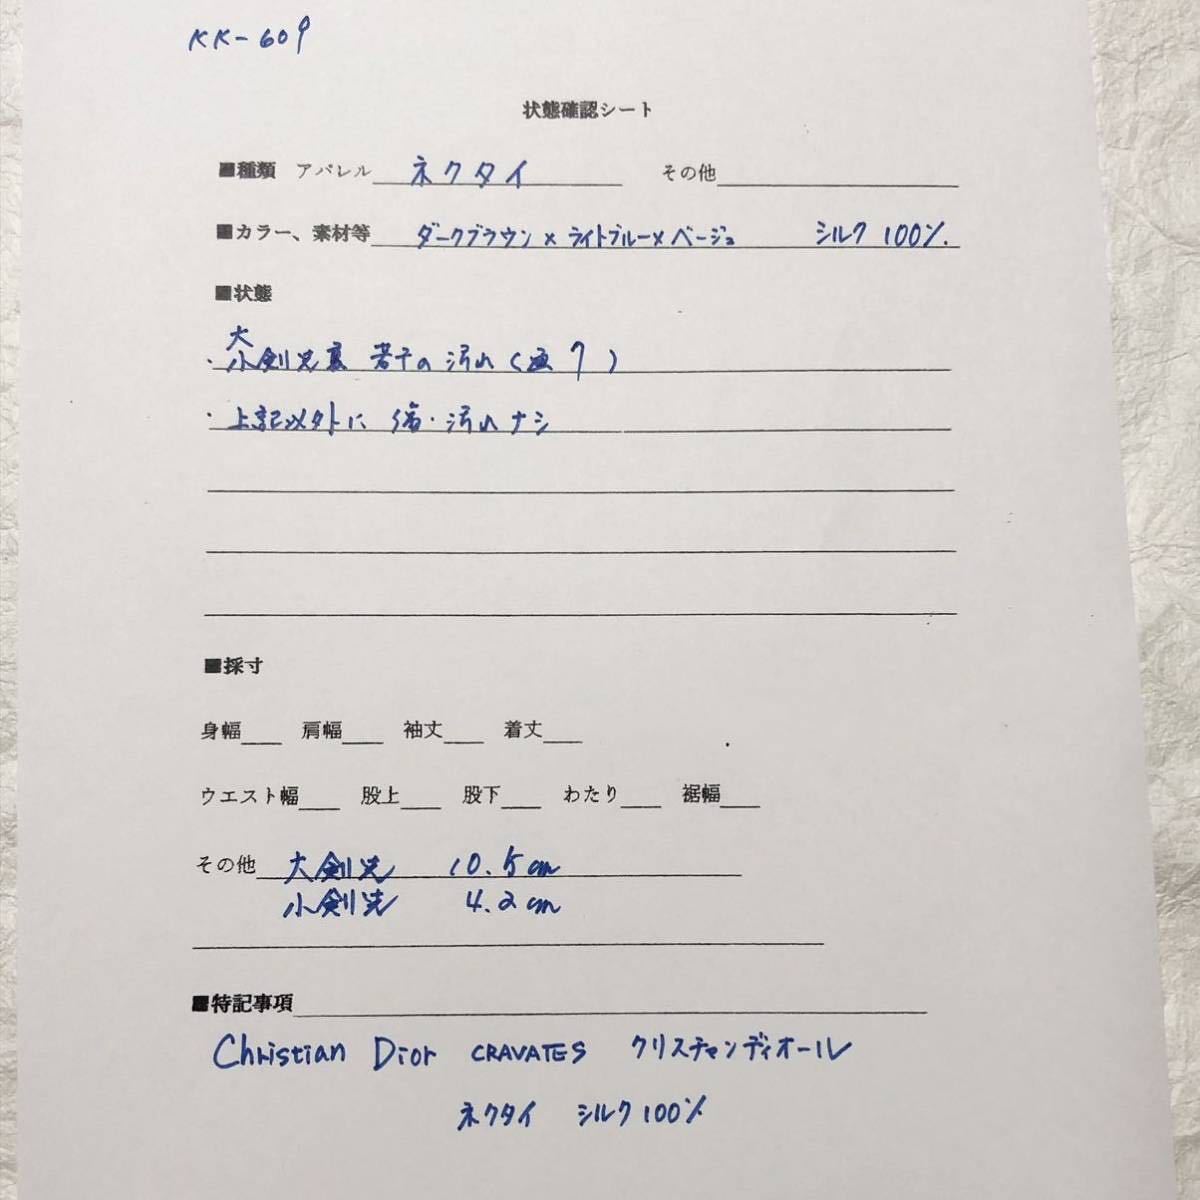 KK-609
状態確認シート
■種類 アパレル ネクタイ その他
■カラー、素材等 ダークブラウン×ライトブルー×ベージュ シルク100%
■状態
大
・小剣先裏 若干の汚れ(画7)
・上記以外に 傷・汚れナシ
■採寸
身幅 肩幅 袖丈 着丈
ウエスト幅 股上 股下 わたり 裾幅
その他 大剣先 10.5cm
小剣先 4.2cm
■特記事項
Christian Dior CRAVATES クリスチャンディオール
ネクタイ シルク100%